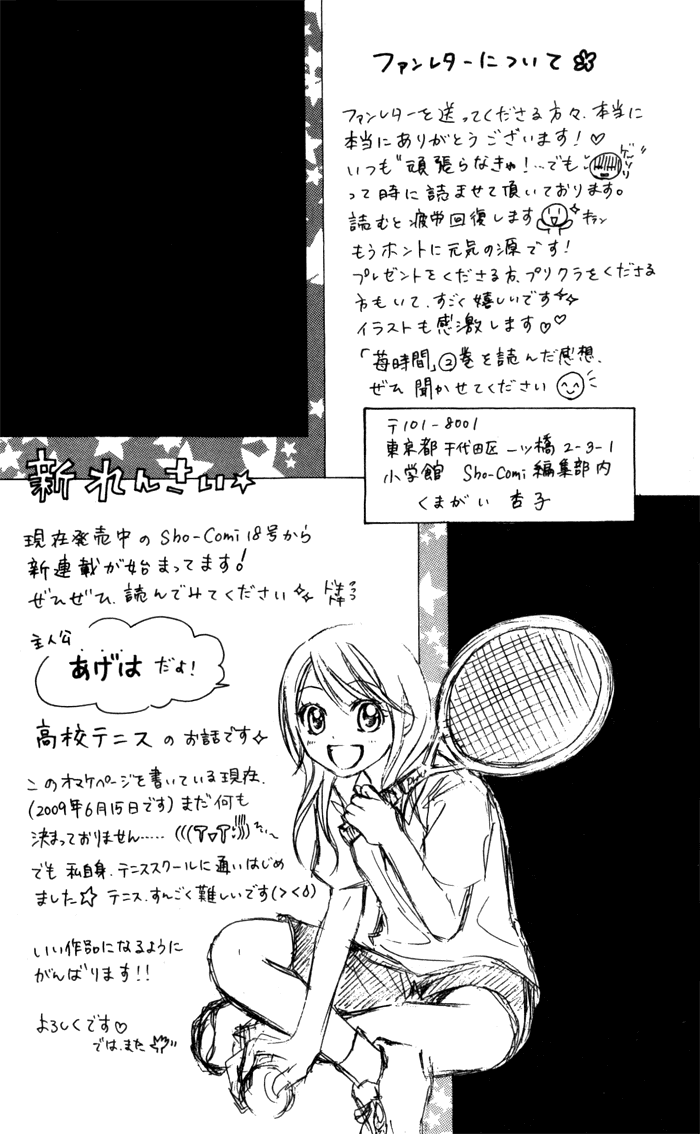 ファンレターについて
ファンレターを送ってくださる方々、本当に
本当にありがとうございます!♡
いつも"頑張らなきゃ!…でも…
ゲッソリ
って時に読ませて頂いております。
読むと疲労回復します
キラン
もうホントに元気の源です!
プレゼントをくださる方、プリクラをくださる
方もいて、すごく嬉しいです
イラストも感激します♡♡
「苺時間」②巻を読んだ感想、
ぜひ 聞かせてください
〒101-8001
東京都千代田区一ッ橋2-3-1
小学館 Sho-Comi編集部内
くまがい 杏子
新れんさい☆
現在発売中のSho-Comi 18号から
新連載が始まってます!
ぜひぜひ、読んでみてください
ドキドキ
主人公
あげは だよ!
高校テニス の お話です
このオマケページを書いている現在、
(2009年6月15日です)まだ何も
決まっておりません…‥
でも 私自身、テニススクールに通いはじめ
ました☆ テニス、すんごく難しいです(>くδ)
いい作品になるように
がんばります!!
よろしくです♡
では、また